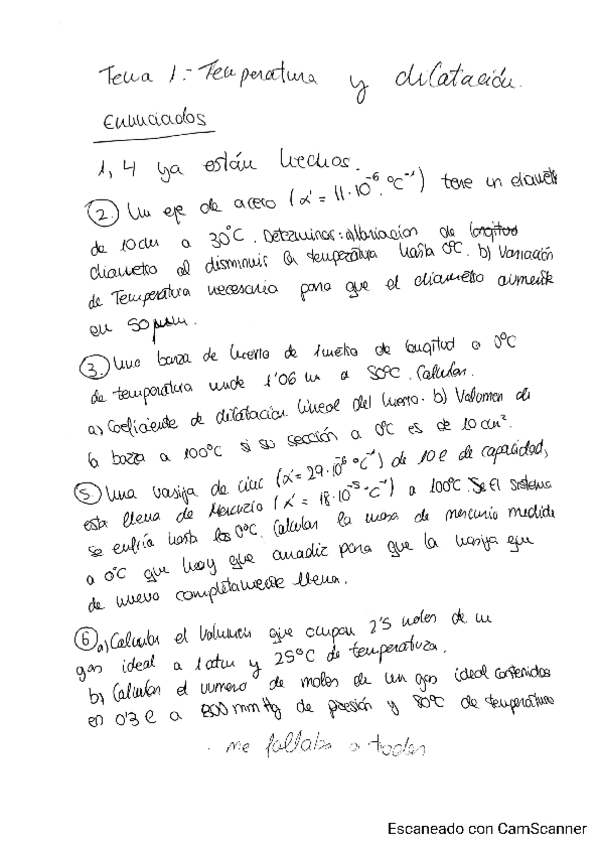 Tema 1.- Temperatura y dilatación.
Enunciados
1, 4 ya están hechos.
2. Un eje de acero (α = 11·10⁻⁶ ·°C⁻¹) tiene un diámetro
de 10cm a 30°C. Determinar: a) Variación de longitud
diametro al disminuir la temperatura hasta 0°C. b) Variación
de Temperatura necesaria para que el diametro aumente
en 50 μm.
3. Una barra de hierro de 1 metro de longitud a 0°C
de temperatura mide 1'06 m a 80°C. Calcular.
a) Coeficiente de dilatación lineal del hierro. b) Volumen de
la barra a 100°C si su sección a 0°C es de 10 cm².
5. Una vasija de cinc (α = 29·10⁻⁶ °C⁻¹) de 10 l de capacidad,
esta llena de Mercurio (α = 18·10⁻⁵ °C⁻¹) a 100°C. Se El sistema
se enfría hasta los 0°C. Calcular la masa de mercurio medida
a 0°C que hay que anadir para que la vasija
de nuevo completamente llena.
6 a) Calcular el volumen que ocupan 2'5 moles de un
gas ideal a 1 atm y 25°C de temperatura.
b) Calcular el numero de moles de un gas ideal contenidos
en 0'3 l a 800 mm Hg de presión y 80°C de temperatura
me faltaba a todos
Escaneado con CamScanner